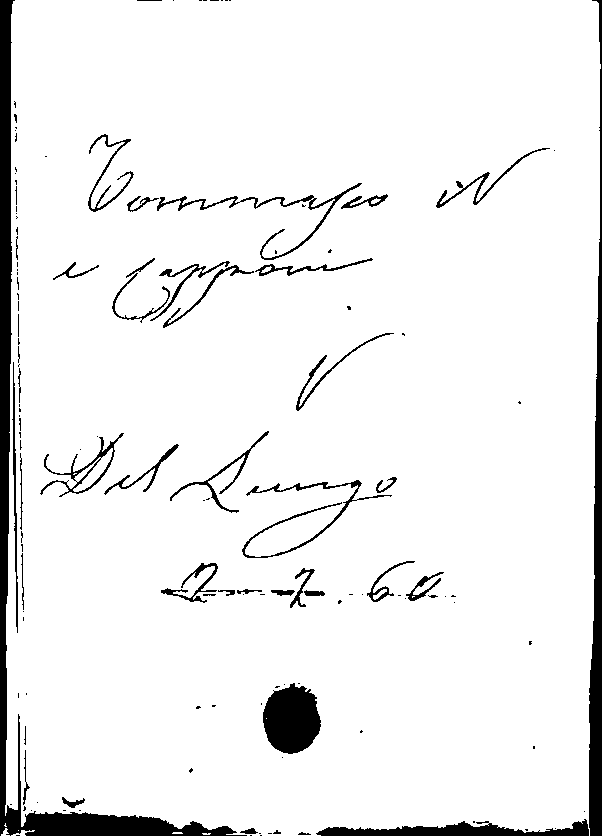 Tommaseo N
e Capponi
V
Del Lungo
2 7. 60